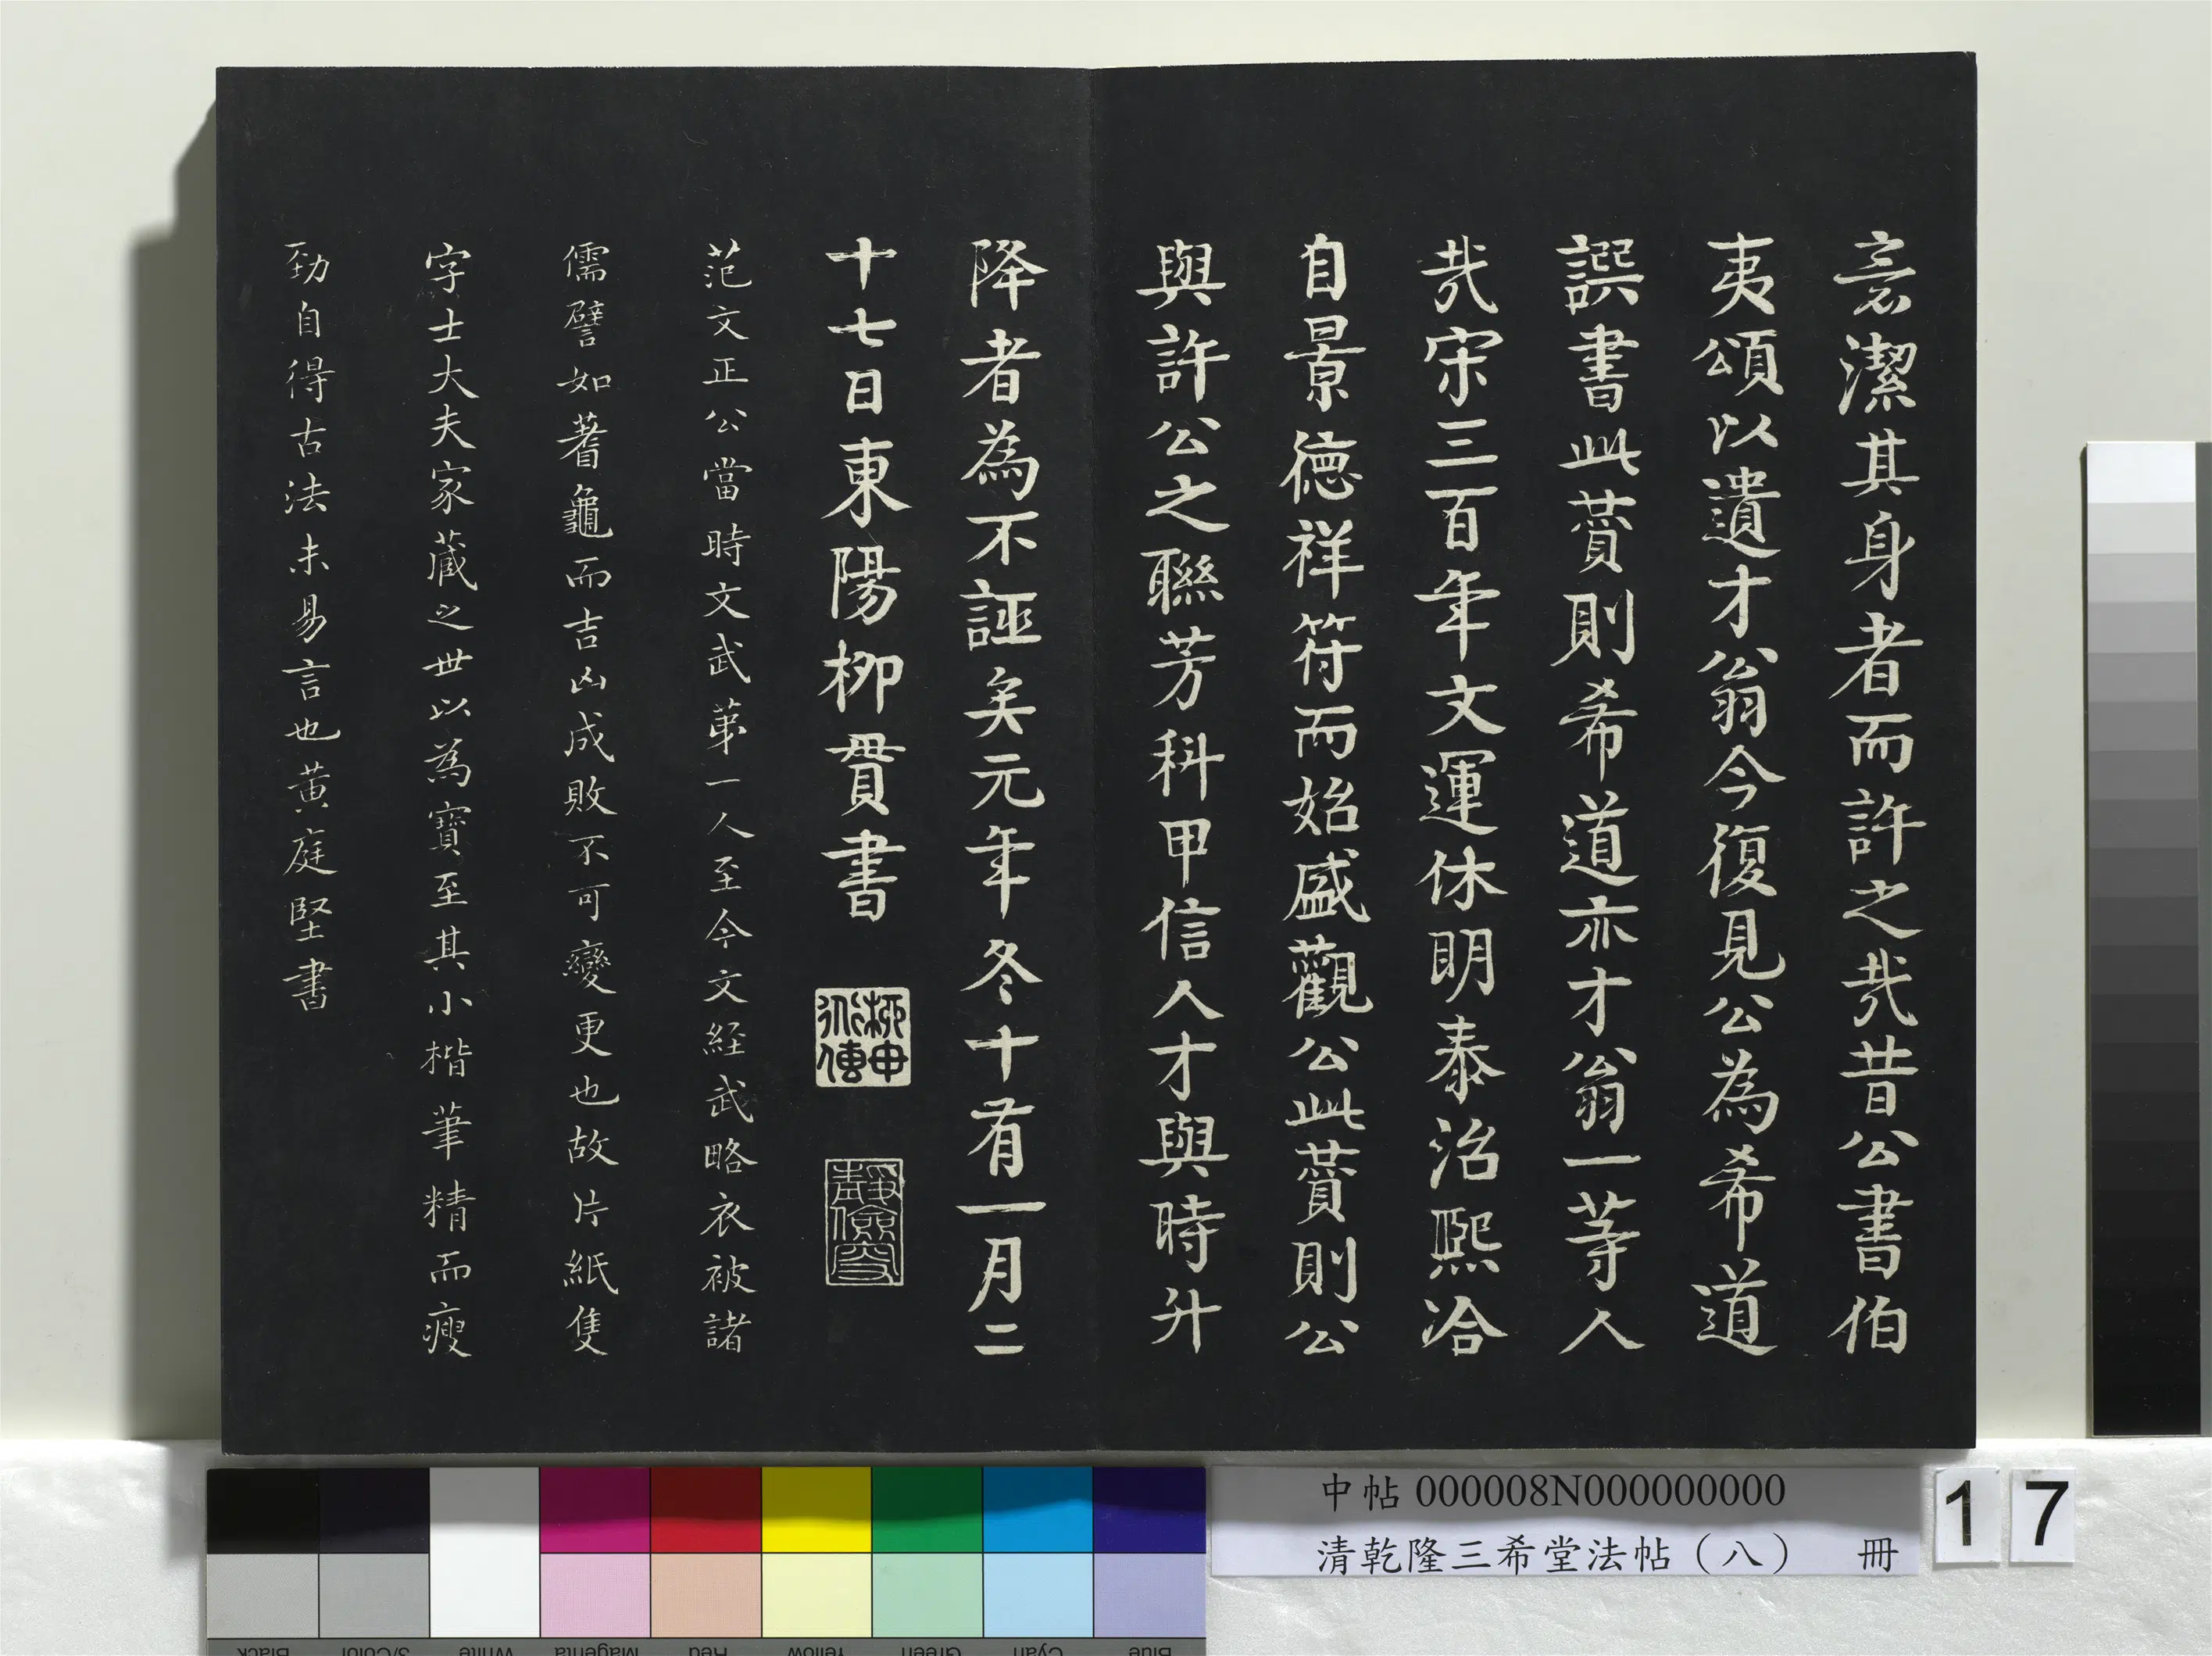 意潔其身者而許之哉昔公書伯
夷頌以遺才翁今復見公為希道
譔書此賛則希道亦才翁一等人
哉宋三百年文運休明泰治熙洽
自景德祥符而始盛觀公此賛則公
與許公之聯芳科甲信人才與時升
降者為不誣矣元年冬十有一月二
十七日東陽柳貫書
柳中
傳
靜儉
范文正公當時文武第一人至今文經武略衣被諸
儒譬如蓍龜而吉凶成敗不可變更也故片紙隻
字士大夫家藏之世以為寶至其小楷筆精而瘦
勁自得古法未易言也黃庭堅書
中帖 000008N000000000
清乾隆三希堂法帖（八） 冊
17
Black
3/Color
White
Magenta
Red
Yellow
Green
Cyan
Blue